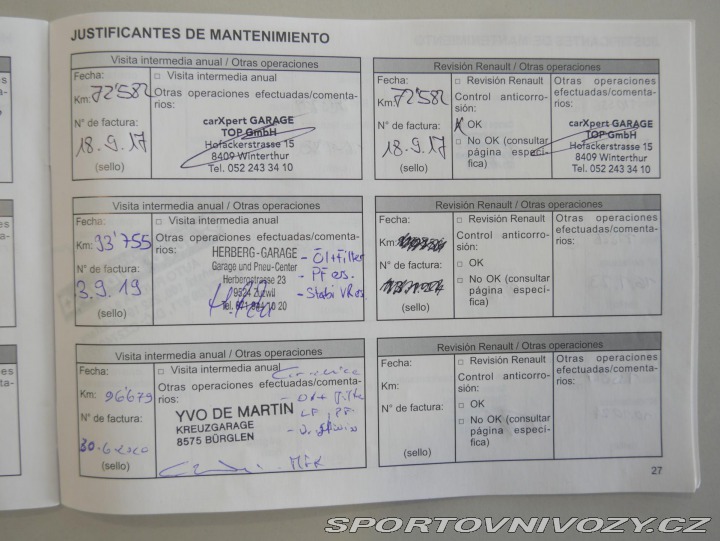 JUSTIFICANTES DE MANTENIMIENTO
Visita intermedia anual / Otras operaciones
Fecha:
□ Visita intermedia anual
Km: 72'582
Otras operaciones efectuadas/comenta-
rios:
N° de factura:
18.9.17
(sello)
carXpert GARAGE
TOP GmbH
Hofackerstrasse 15
8409 Winterthur
Tel. 052 243 34 10
Revisión Renault / Otras operaciones
Fecha:
□ Revisión Renault
Km: 72'582
Control anticorro-
sión:
N° de factura:
□ OK
18.9.17
□ No OK (consultar
página especí-
fica)
(sello)
Otras operaciones
efectuadas/comenta-
rios:
carXpert GARAGE
TOP GmbH
Hofackerstrasse 15
8409 Winterthur
Tel. 052 243 34 10
Visita intermedia anual / Otras operaciones
Fecha:
□ Visita intermedia anual
Km: 93'755
Otras operaciones efectuadas/comenta-
rios:
N° de factura:
3.9.19
(sello)
HERBERG-GARAGE
Garage und Pneu-Center
Herbergstrasse 23
9524 Zuzwil
- Öl+Filter
- PF es.
- Stabi
Revisión Renault / Otras operaciones
Fecha:
□ Revisión Renault
Km:
Control anticorro-
sión:
N° de factura:
□ OK
□ No OK (consultar
página especí-
fica)
(sello)
Otras operaciones
efectuadas/comenta-
rios:
Visita intermedia anual / Otras operaciones
Fecha:
□ Visita intermedia anual
Km: 96'679
Otras operaciones efectuadas/comenta-
rios:
N° de factura:
30.6.2020
(sello)
YVO DE MARTIN
KREUZGARAGE
8575 BÜRGLEN
Revisión Renault / Otras operaciones
Fecha:
□ Revisión Renault
Km:
Control anticorro-
sión:
N° de factura:
□ OK
□ No OK (consultar
página especí-
fica)
(sello)
Otras operaciones
efectuadas/comenta-
rios:
27
SPORTOVNIVOZY.CZ